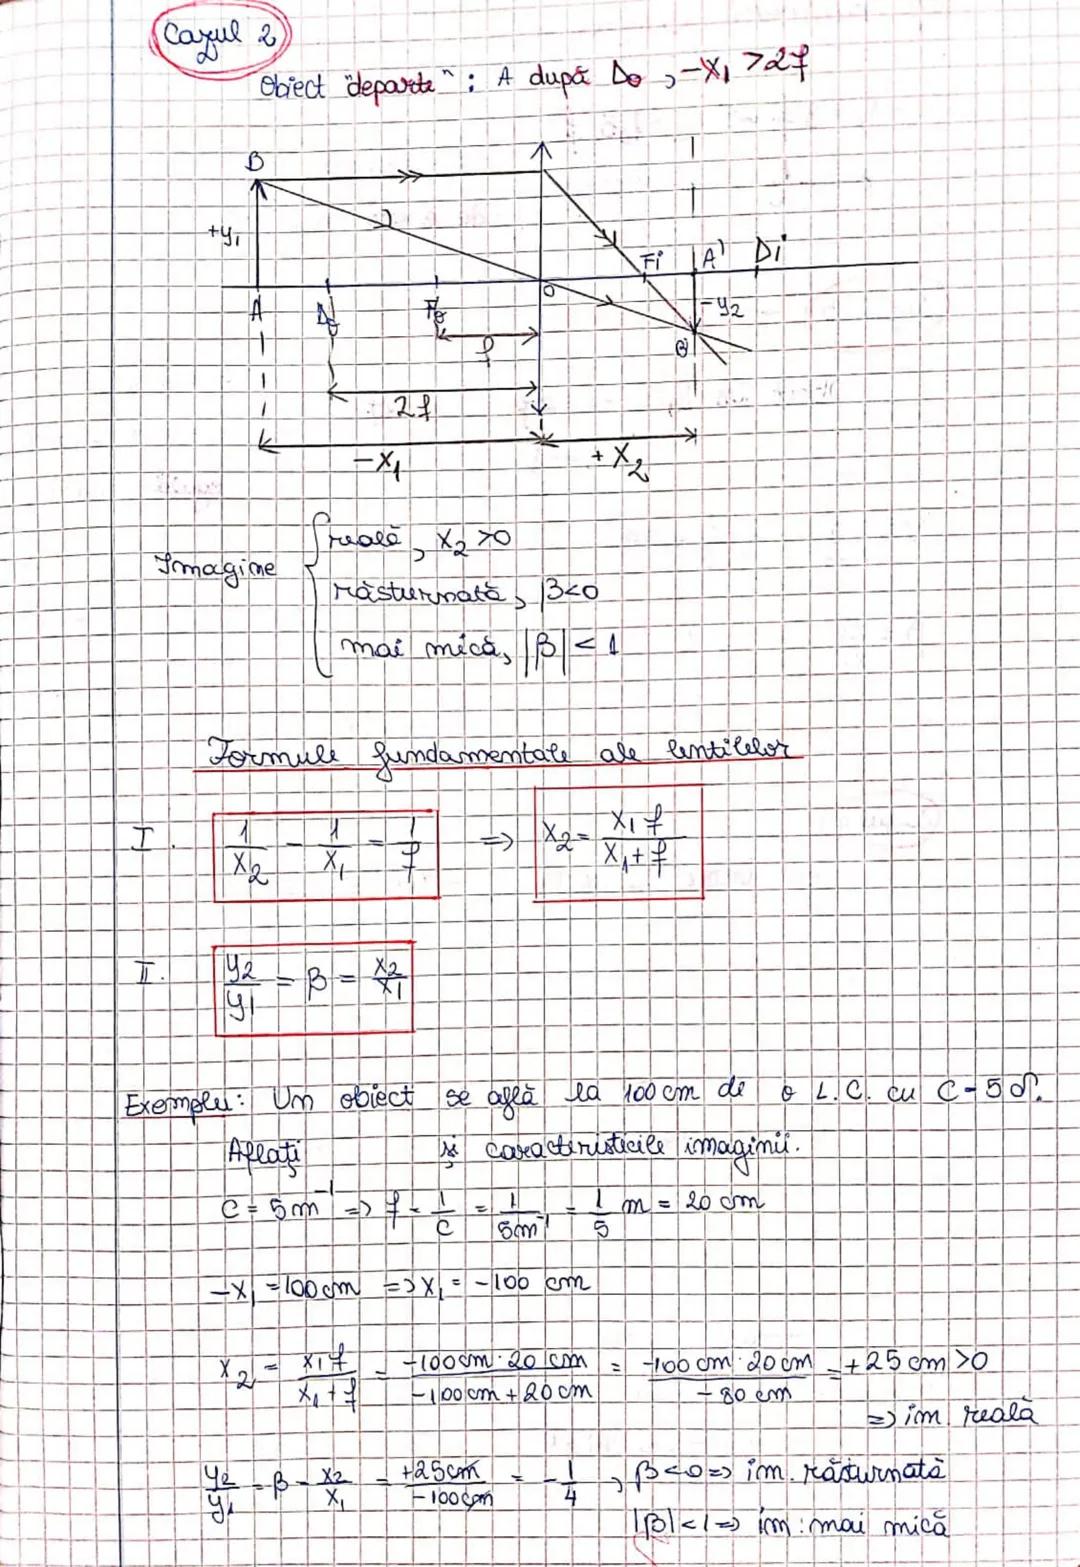 Cazul 2
Obiect "departe": A după Do, -x₁ > 2f
B
+y₁
Fi A' Di
O
A Do Fo
-y₂
B'
f
2f
-x₁ +x₂
Imagine { reală, x₂ > 0
răsturnată, β < 0
mai mică, |β| < 1
Formule fundamentale ale lentilelor
I. 1/x₂ - 1/x₁ = 1/f ⇒ x₂ = x₁f/(x₁+f)
II. y₂/y₁ = β = x₂/x₁
Exemplu: Un obiect se află la 100 cm de o L.C. cu C = 5 δ.
Aflați și caracteristicile imaginii.
C = 5m⁻¹ ⇒ f = 1/C = 1/5m⁻¹ = 1/5 m = 20 cm
-x₁ = 100 cm ⇒ x₁ = -100 cm
x₂ = x₁f/(x₁+f) = (-100cm·20cm)/(-100cm+20cm) = (-100cm·20cm)/(-80cm) = +25cm > 0
⇒ im. reală
y₂/y₁ = β = x₂/x₁ = +25cm/-100cm = -1/4, β<0 ⇒ im. răsturnată
|β|<1 ⇒ im: mai mică